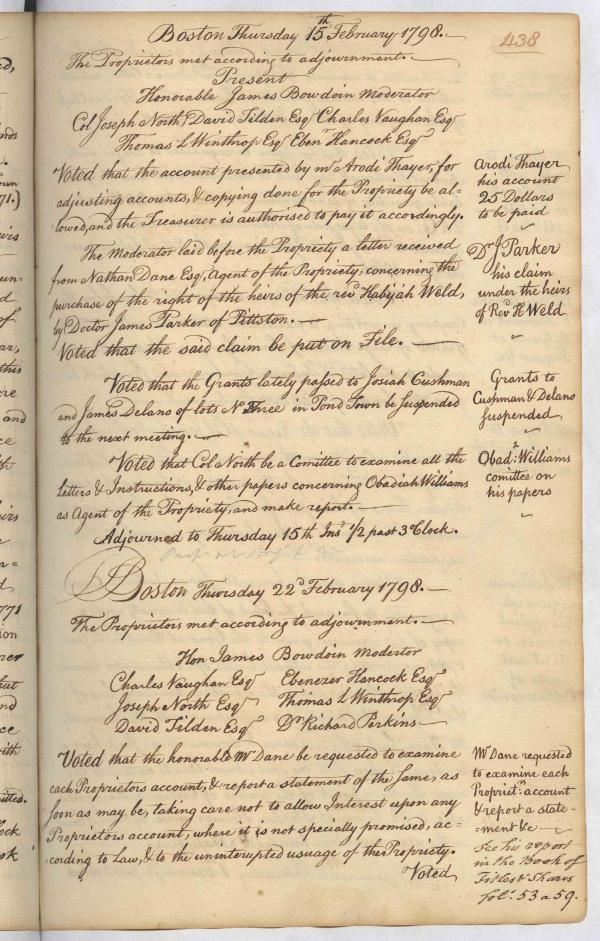 438
Boston Thursday 15th February 1798.
The Proprietors met according to adjournment.
Present
Honorable James Bowdoin Moderator
Col Joseph North, David Tilden Esqr Charles Vaughan Esqr
Thomas L Winthrop Esqr Ebenr Hancock Esqr
Voted that the account presented by mr Arodi Thayer, for
adjusting accounts, & copying done for the Propriety be al=
lowed, and the Treasurer is authorised to pay it accordingly.
Arodi Thayer
his account
25 Dollars
to be paid
The Moderator laid before the Propriety a letter received
from Nathan Dane Esqr, Agent of the Propriety, concerning the
purchase of the right of the heirs of the revd Habijah Weld,
by Doctor James Parker of Pittston.
Voted that the said claim be put on File.
Dr J Parker
his claim
under the heirs
of Revd H Weld
Voted that the Grants lately passed to Josiah Cushman
and James Delano of lots No Three in Pond Town be Suspended
to the next meeting.
Grants to
Cushman & Delano
Suspended
Voted that Col North be a Comittee to examine all the
Letters & Instructions, & other papers concerning Obadiah Williams
as Agent of the Propriety, and make report.
Obadh: Williams
comittee on
his papers
Adjourned to Thursday 15th Inst 1/2 past 3 oClock.
Boston Thursday 22d February 1798.
The Proprietors met according to adjournment.
Hon James Bowdoin Modertor
Charles Vaughan Esqr Ebenezer Hancock Esqr
Joseph North Esqr Thomas L Winthrop Esqr
David Tilden Esqr Dr Richard Perkins
Voted that the honorable Mr Dane be requested to examine
each Proprietors account, & report a statement of the Same, as
Soon as may be, taking care not to allow Interest upon any
Proprietors account, where it is not specially promised, ac=
cording to Law, & to the uninterupted usuage of the Propriety.
Voted
Mr Dane requested
to examine each
Propriets: account
& report a state-
-ment &c
See his report
in the Book of
Titles & Shares
fol: 53 a 59.